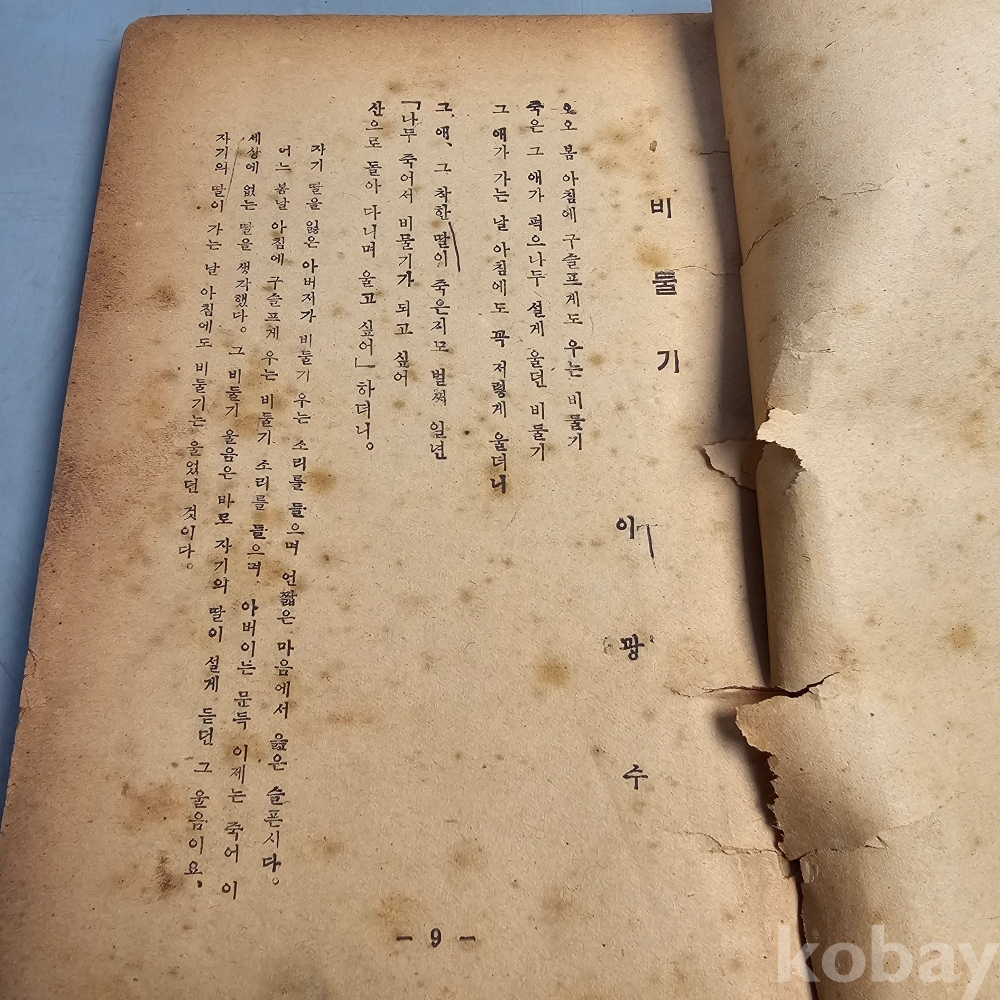 비둘기
이광수
오오 봄 아침에 구슬프게도 우는 비둘기
죽은 그 애가 퍽으나두 설게 울던 비둘기
그 애가 가는 날 아침에도 꼭 저렇게 울더니
그 애, 그 착한 딸이 죽은지도 벌써 일년
「나두 죽어서 비둘기가 되고 싶어
산으로 돌아 다니며 울고 싶어」 하더니。
자기 딸을 잃은 아버지가 비둘기 우는 소리를 들으며 언짢은 마음에서 읊은 슬픈시다。
어느 봄날 아침에 구슬프게 우는 비둘기 소리를 들으며 아버이는 문득 이제는 죽어 이
세상에 없는 딸을 생각했다。 그 비둘기 울음은 바로 자기의 딸이 설게 듣던 그 울음이요、
자기의 딸이 가는 날 아침에도 비둘기는 울었던 것이다。
— 9 —
kobay